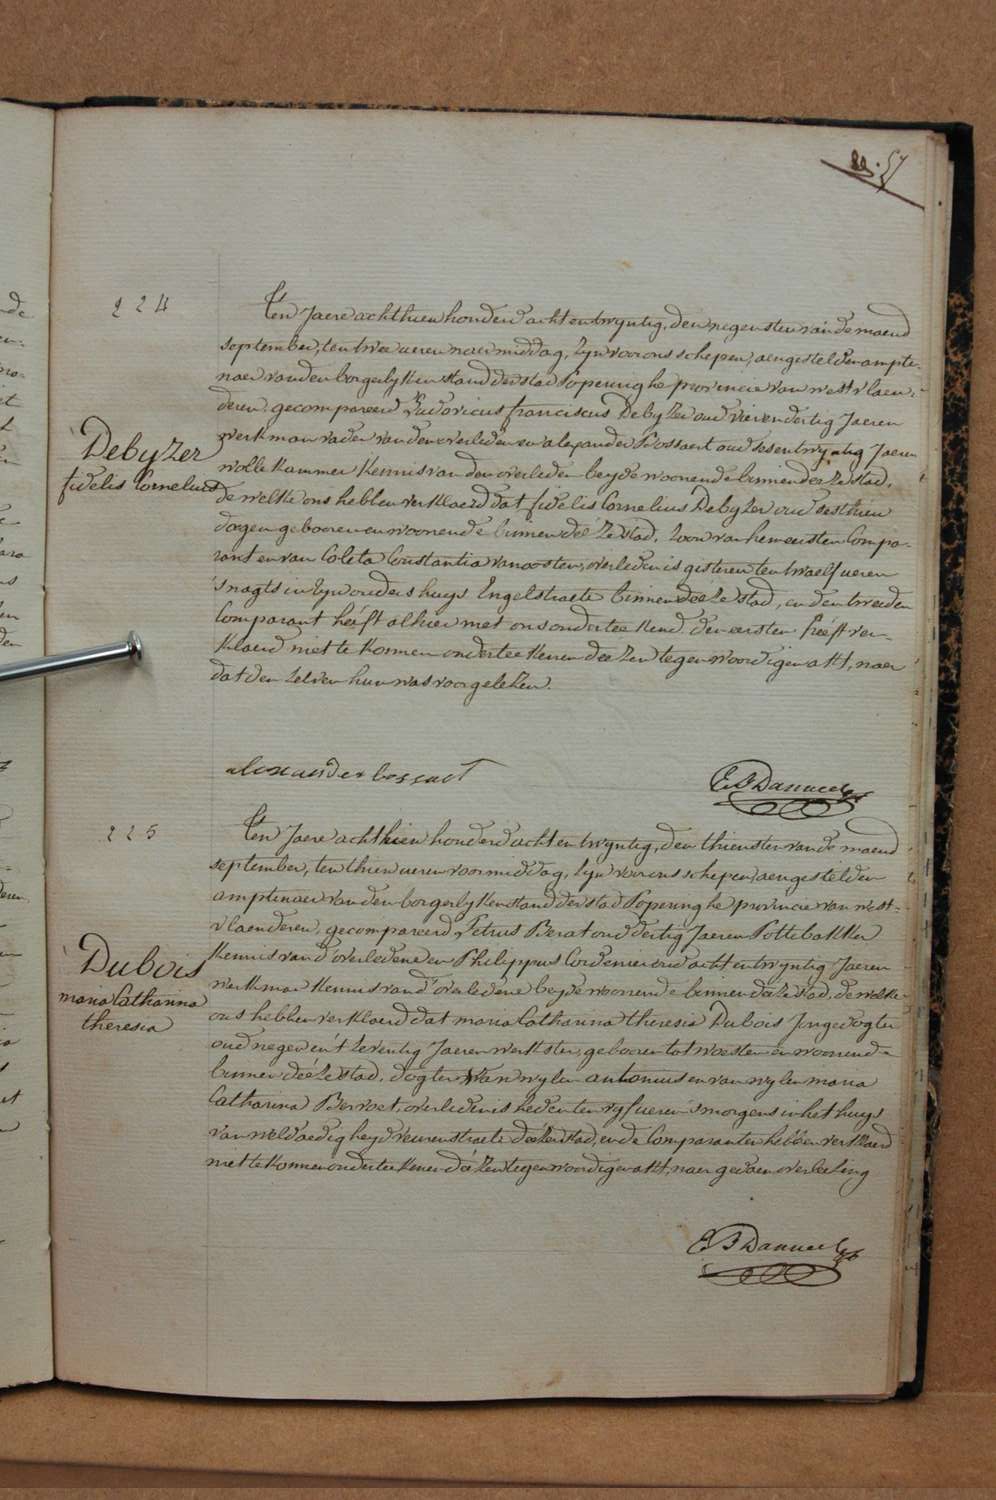 57
224
Ten Jaere achthien honderd acht en twyntig, den negensten van de maend
september, ten twee ueren naer middag, zyn voor ons schepen, aengestelden ampte-
naer van den borgerlyken stand der stad Poperinghe provincie van westvlaen-
deren, gecompareerd Ludovicus franciscus Debyzer oud vierendertig Jaeren
werkman vader van den overleden en alexander Bossaert oud sesentwyntig Jaeren
wolle kammer kennis van den overleden beyde woonende binnen deeze stad,
de welke ons hebben verklaerd dat fidelis Cornelius Debyzer oud sesthien
dagen gebooren en woonende binnen deéze stad, zoon van den eersten Compa-
rant en van Coleta Constantia vanoosten, overleden is gisteren ten twaelf ueren
's nagts in zyn ouders huys Engelstraete binnen deeze stad, en den tweeden
Comparant heéft alhier met ons onderteekend, den eersten heéft ver-
klaerd niet te konnen onderteekenen deezen tegenwoordigen akt, naer
dat den zelven hun was voorgelezen.
Debyzer
fidelis Cornelius
alexander bossaert
225
Ten Jaere achthien honderd acht en twyntig, den thiensten van de maend
september, ten thien ueren voormiddag, zyn voor ons schepen, aengestelden
amptenaer van den borgerlyken stand der stad Poperinghe provincie van west-
vlaenderen, gecompareerd Petrus Berat oud dertig Jaeren Pottebakker
kennis vand' overledene en Philippus Cordemier oud acht en twyntig Jaeren
werkman kennis vand' overledene beyde woonende binnen deeze stad, de welke
ons hebben verklaerd dat maria Catharina theresia Dubois Jongedogter
oud negen en 't zeventig Jaeren werkster, gebooren tot woesten en woonende
binnen deéze stad, dogter van wylen antonius en van wylen maria
Catharina Bervoet, overleden is heden ten vyf ueren 's morgens in het huys
van weldaedigheyd veurenstraete deéze stad, en de Comparanten hebben verklaerd
niet te konnen onderteekenen deézen tegenwoordigen akt, naer gedaen voorlezing
Dubois
maria Catharina
theresia